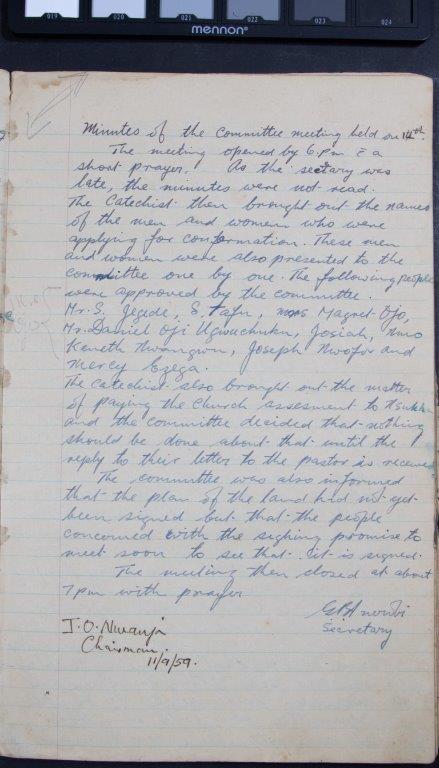 019 020 021 022 023 024
mennon
Minutes of the Committee meeting held on 14th.
The meeting opened by 6.Pm c a
short prayer. As the sectary was
late, the minutes were not read.
The Catechist then brought out the names
of the men and women who were
applying for conformation. These men
and women were also presented to the
committee one by one. The following people
were approved by the committee.
Mr. S. Jegede, S. Tafu, mrs Magret Ojo,
Mr. Daniel Oji Ugwuchuku, Josiah,
Keneth Nwangwu, Joseph Nwofor and
Mercy Ezega.
The Catechist also brought out the matter
of paying the Church assesment to Nsukka
and the committee decided that nothing
should be done about that until the
reply to their letter to the pastor is received
The committee was also informed
that the plan of the land had not yet
been signed but that the people
concerned with the sighing promise to
meet soon to see that it is signed.
The meeting then closed at about
7pm with prayer
Secretary
J. O. Nwanji
Chairman.
11/9/59.